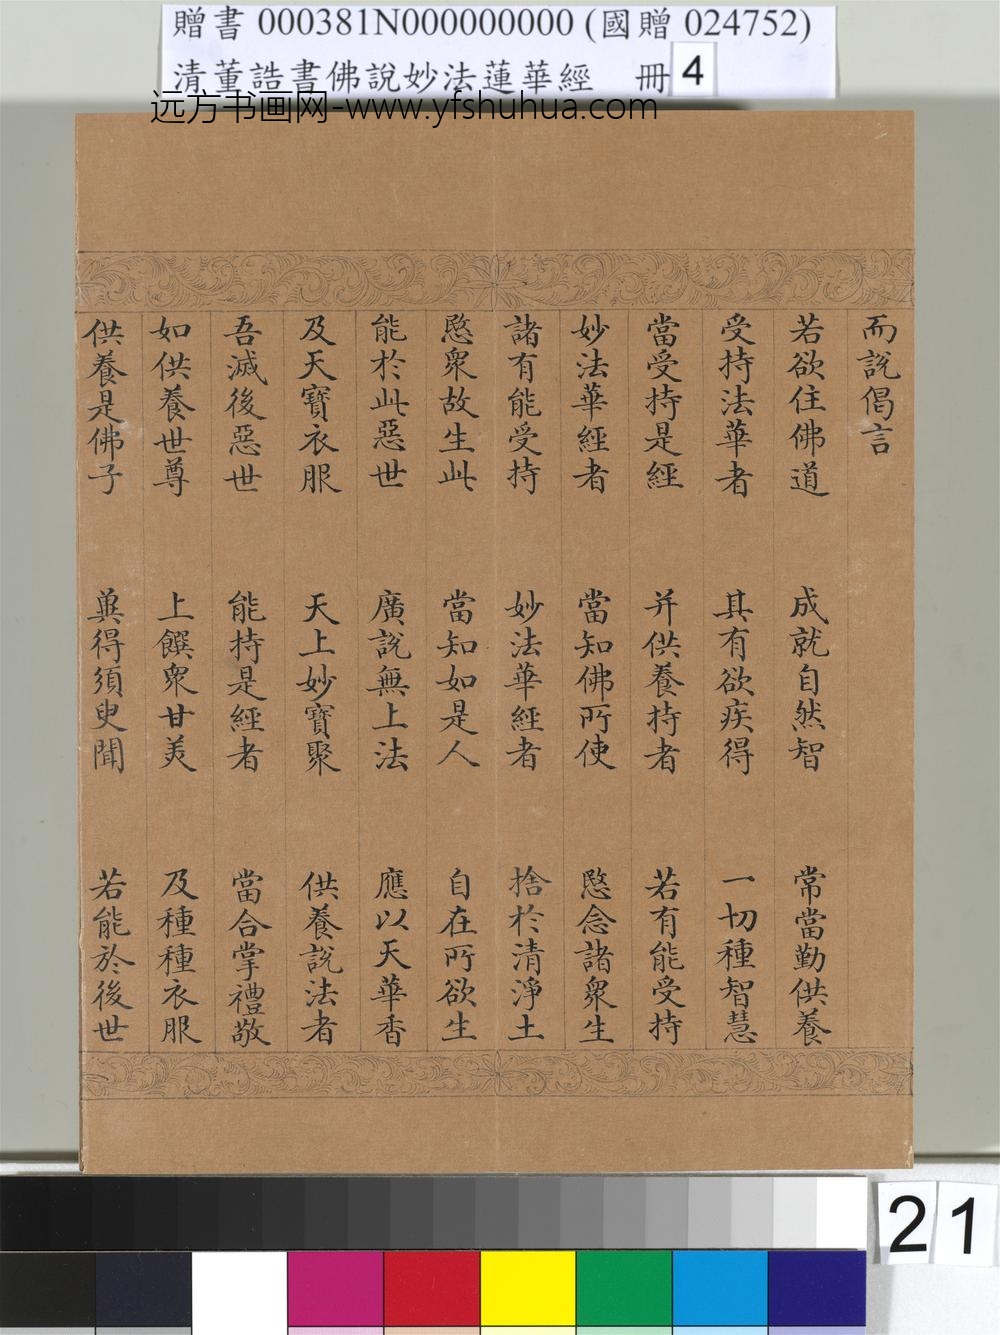 贈書 000381N000000000 (國贈 024752)
清董誥書佛說妙法蓮華經 冊 4
远方书画网-www.yfshuhua.com
而說偈言
若欲住佛道 成就自然智 常當勤供養
受持法華者 其有欲疾得 一切種智慧
當受持是經 并供養持者 若有能受持
妙法華經者 當知佛所使 愍念諸衆生
諸有能受持 妙法華經者 捨於清淨土
愍衆故生此 當知如是人 自在所欲生
能於此惡世 廣說無上法 應以天華香
及天寶衣服 天上妙寶聚 供養說法者
吾滅後惡世 能持是經者 當合掌禮敬
如供養世尊 上饌衆甘美 及種種衣服
供養是佛子 冀得須臾聞 若能於後世
21